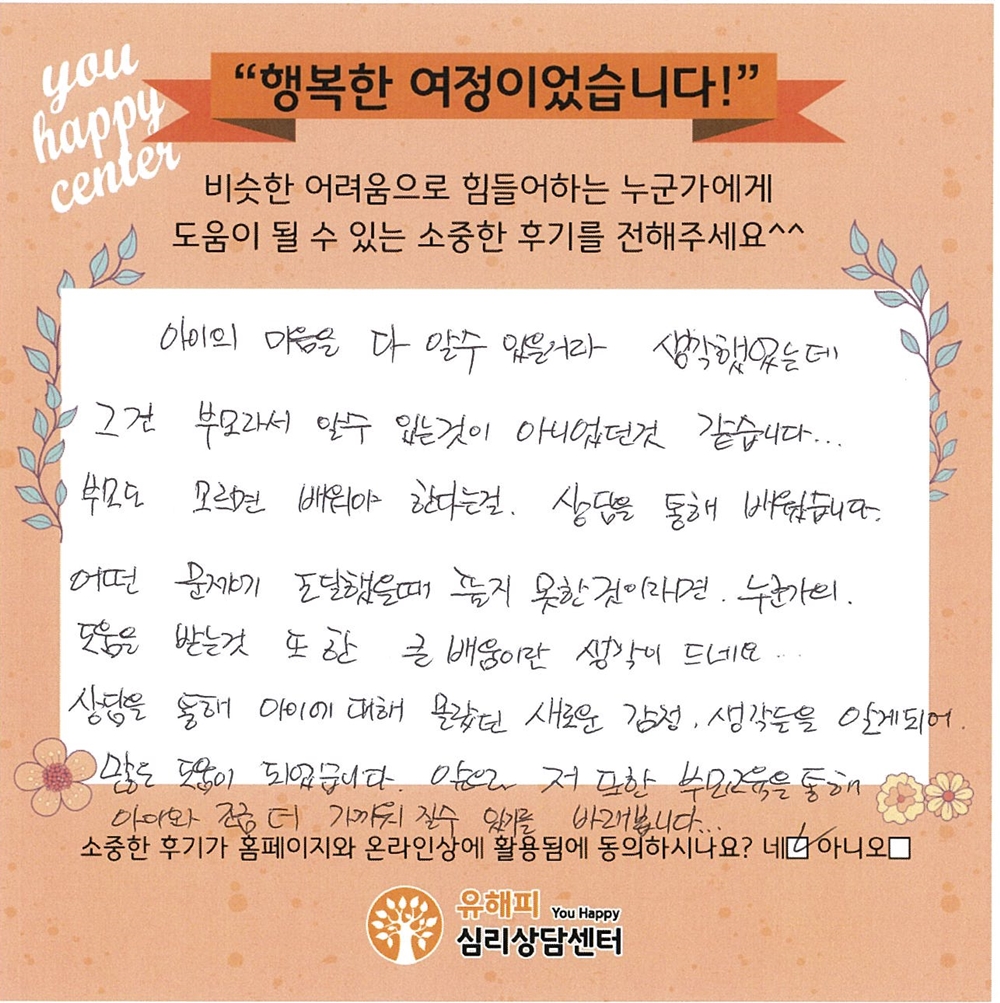 you
happy
center
“행복한 여정이었습니다!”
비슷한 어려움으로 힘들어하는 누군가에게
도움이 될 수 있는 소중한 후기를 전해주세요^^
아이의 마음을 다 알수 있을거라 생각했었는데
그건 부모라서 알수 있는것이 아니었던것 같습니다...
부모도 모르면 배워야 한다는걸. 상담을 통해 배웠습니다.
어떤 문제에 도달했을때 풀지 못한것이라면. 누군가의.
도움을 받는것 또한 큰 배움이란 생각이 드네요...
상담을 통해 아이에 대해 몰랐던 새로운 감정, 생각들을 알게되어.
많은 도움이 되었습니다. 앞으로 저 또한 부모교육을 통해
아이와 조금 더 가까워 질수 있기를 바래봅니다...
소중한 후기가 홈페이지와 온라인상에 활용됨에 동의하시나요? 네☑ 아니오□
유해피 You Happy
심리상담센터